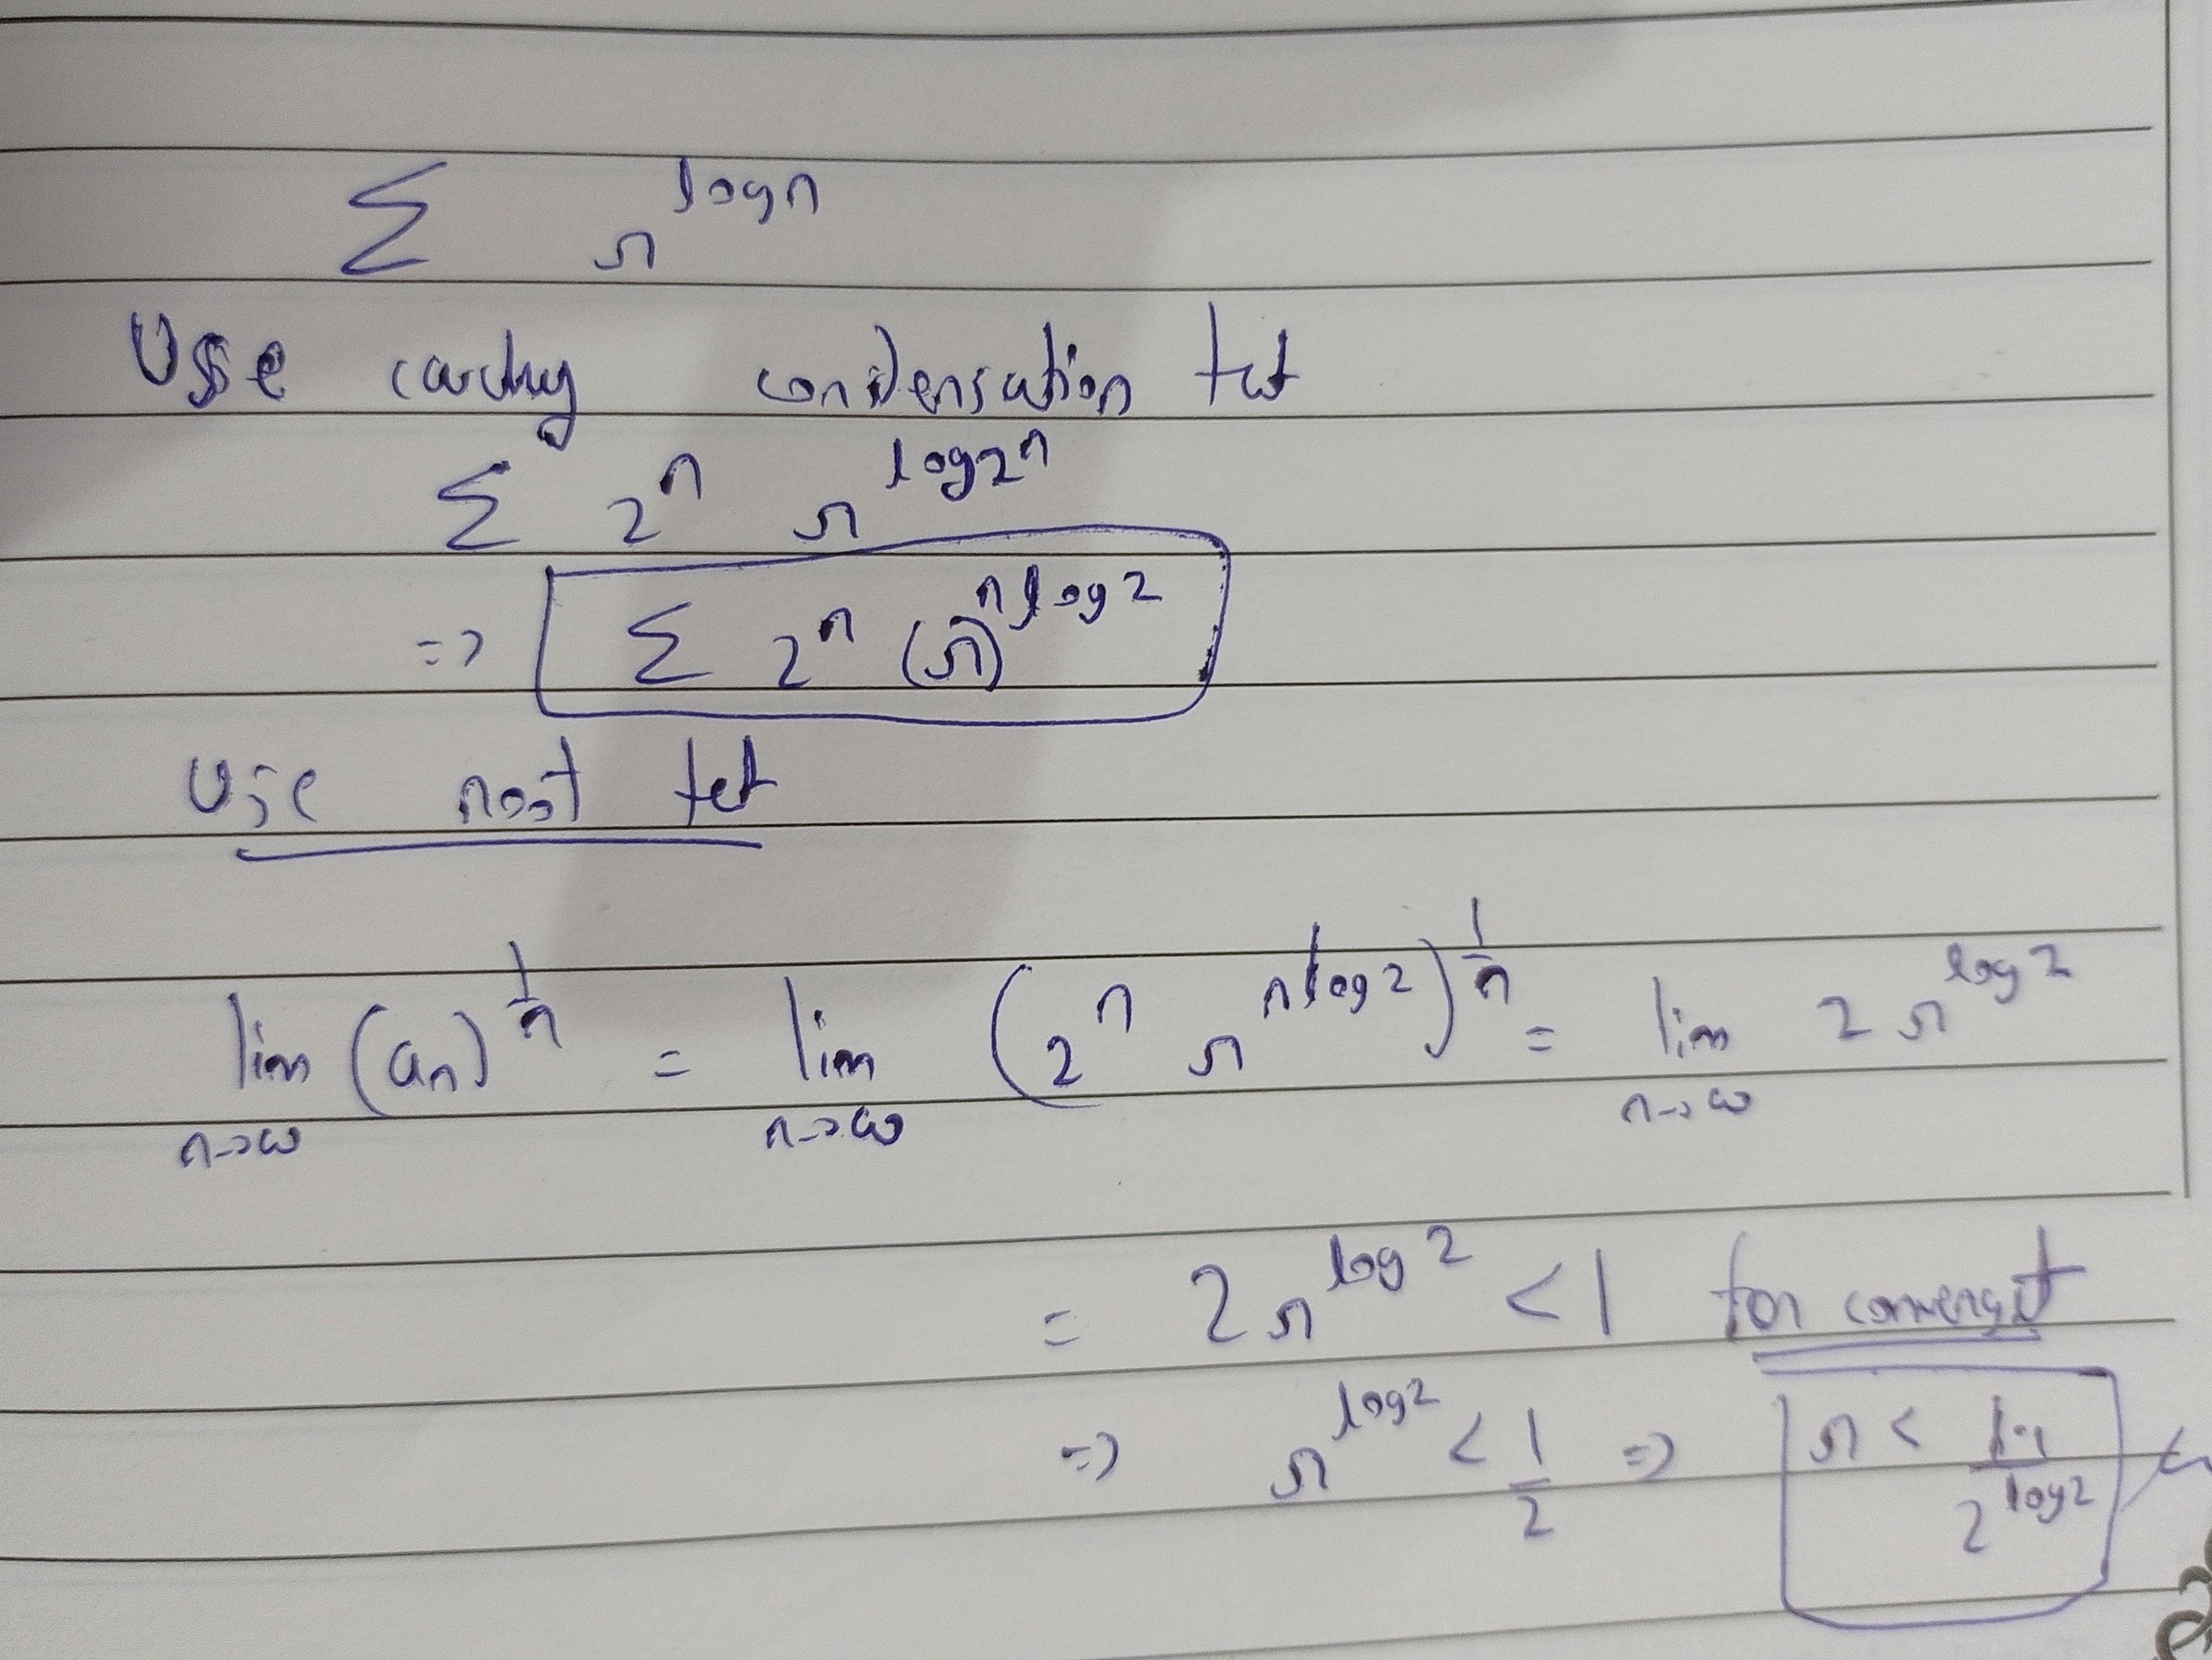 Σ r^{log n}
Use cauchy condensation tet
Σ 2^n r^{log 2^n}
=> Σ 2^n (r)^{n log 2}
Use root tet
lim_{n→∞} (a_n)^{1/n} = lim_{n→∞} (2^n r^{n log 2})^{1/n} = lim_{n→∞} 2 r^{log 2}
= 2 r^{log 2} < 1 for convergt
=> r^{log 2} < 1/2 => r < 1/2^{log 2}